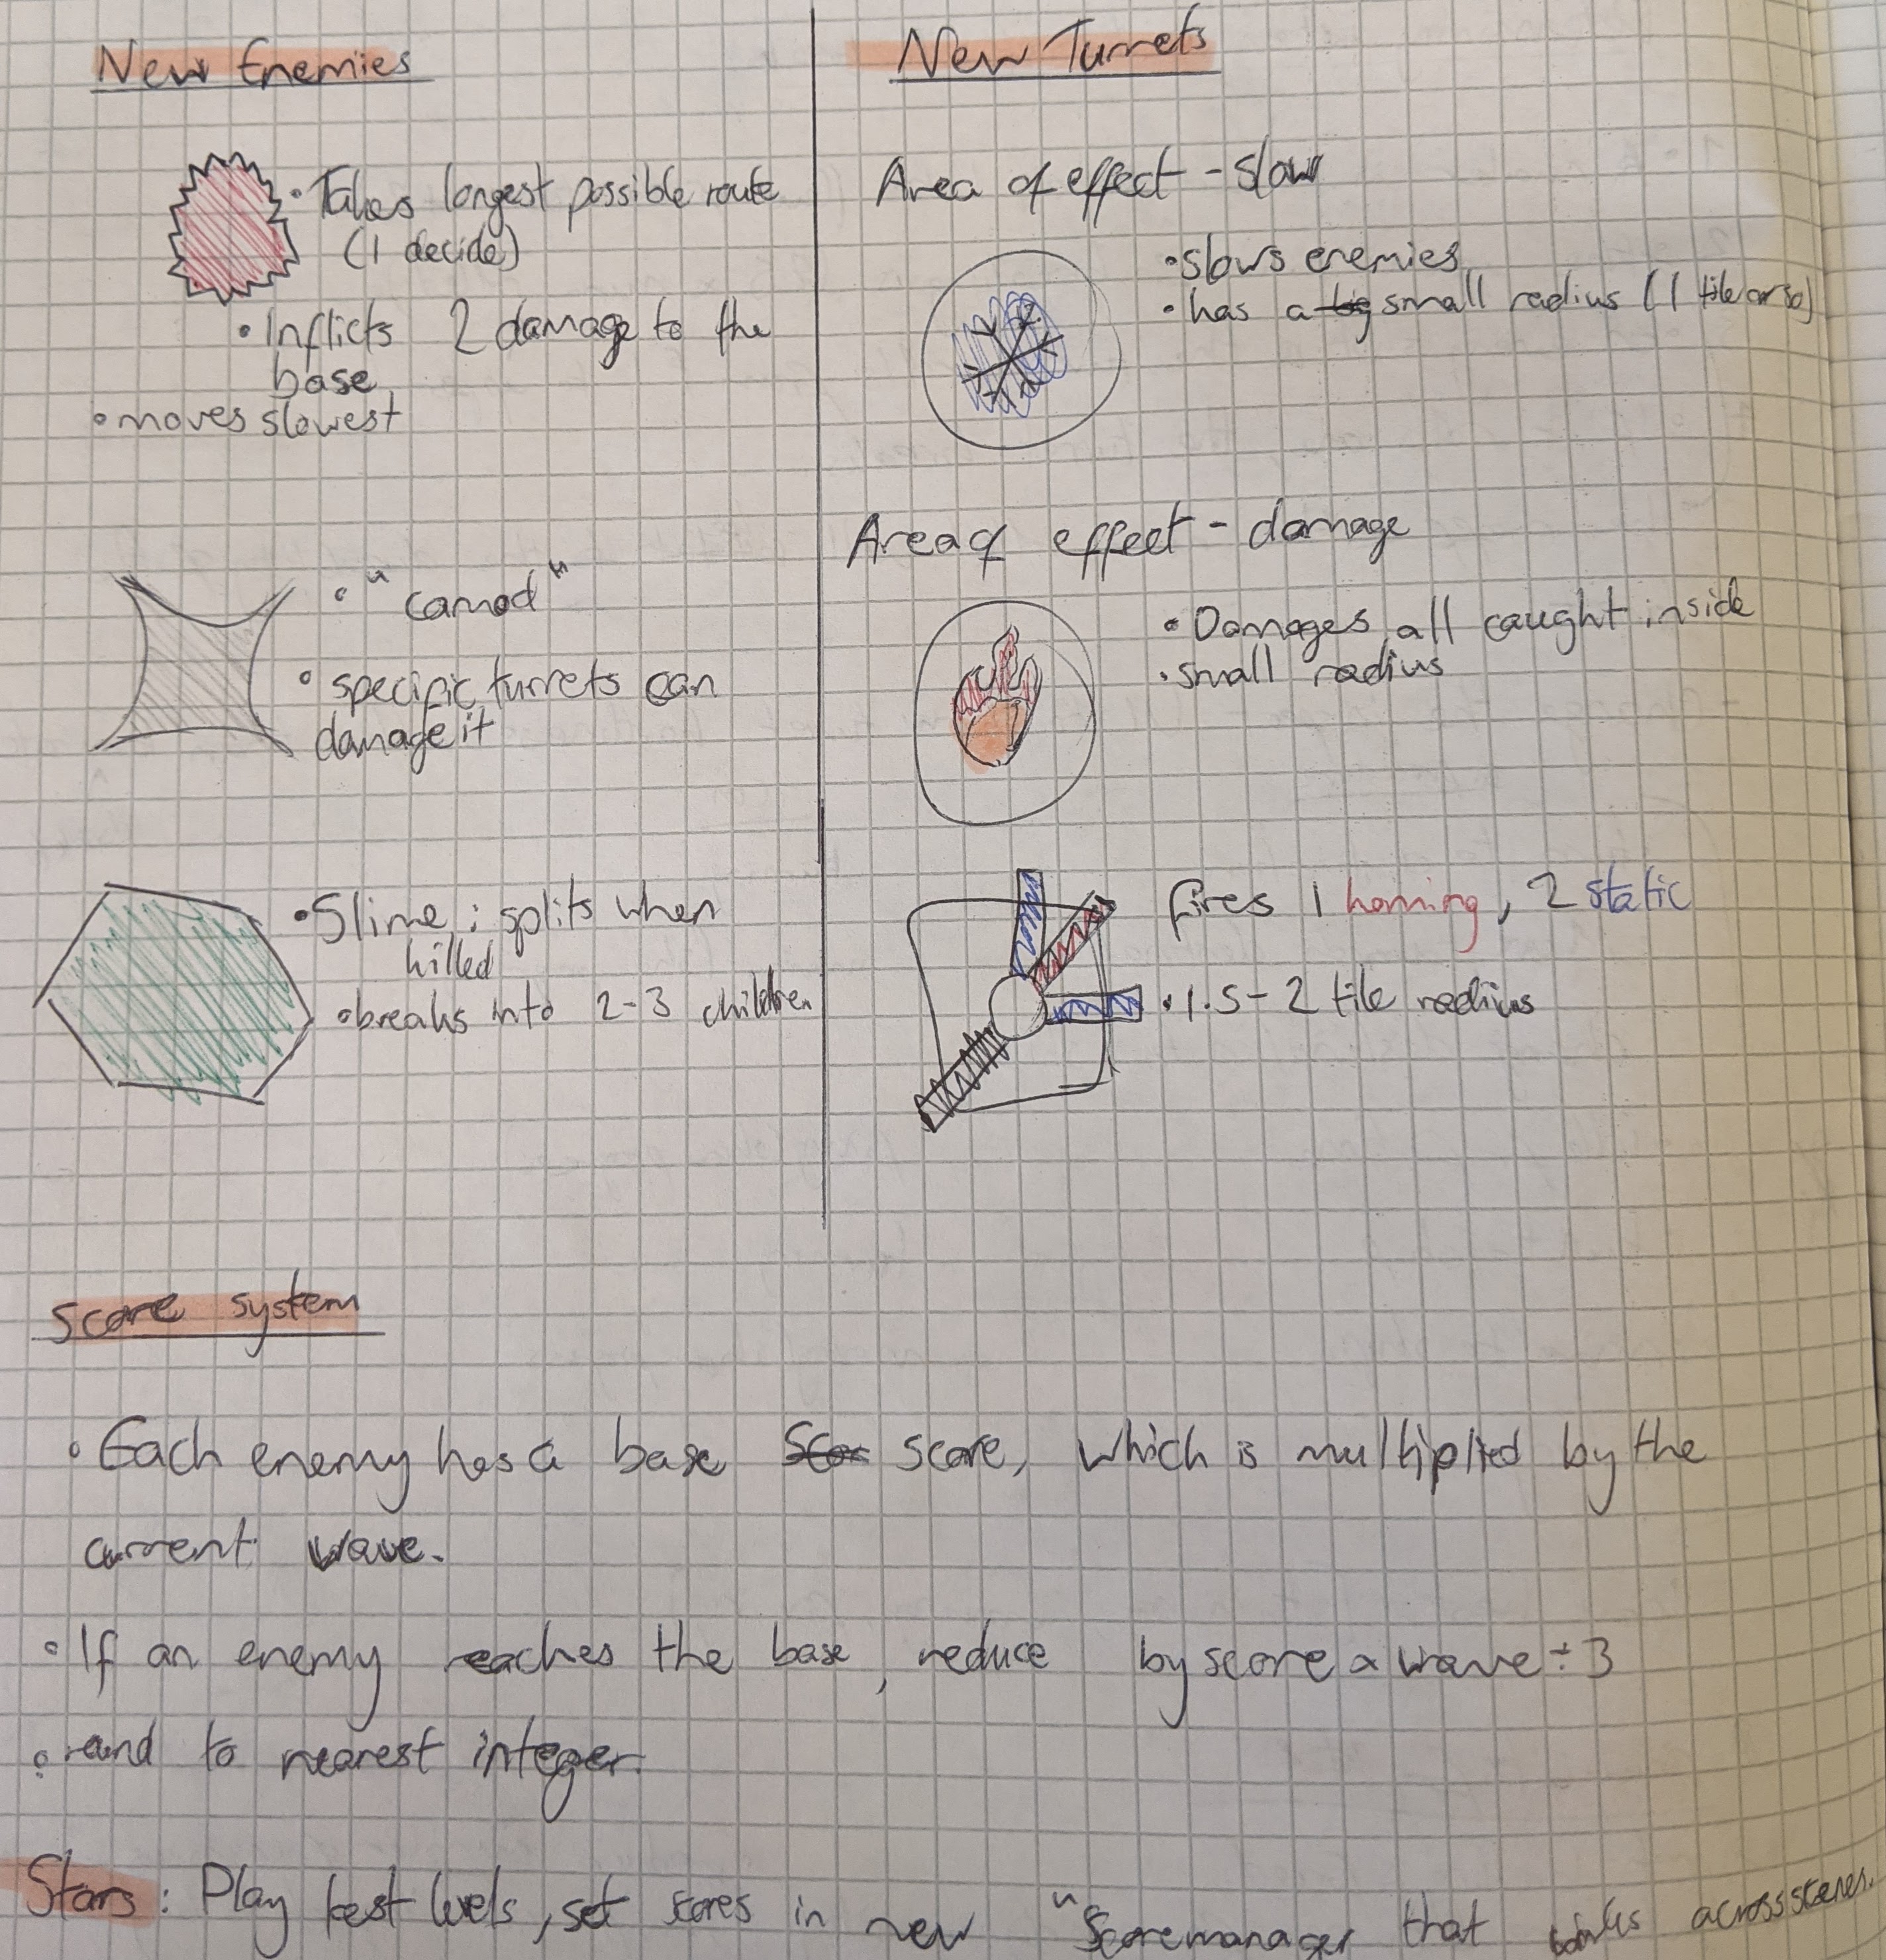 New Enemies
• Takes longest possible route
(I decide)
• Inflicts 2 damage to the
base
• moves slowest
• "camod"
• specific turrets can
damage it
• Slime; splits when
killed
• breaks into 2-3 children
New Turrets
Area of effect - slow
• slows enemies
• has a big small radius (1 tile or so)
Area of effect - damage
• Damages all caught inside
• small radius
fires 1 homing, 2 static
• 1.5 - 2 tile radius
Score system
• Each enemy has a base Scor score, which is multiplied by the
current wave.
• If an enemy reaches the base, reduce by score x wave ÷ 3
• round to nearest integer.
Stars: Play test levels, set scores in new "Scoremanager that across scenes.